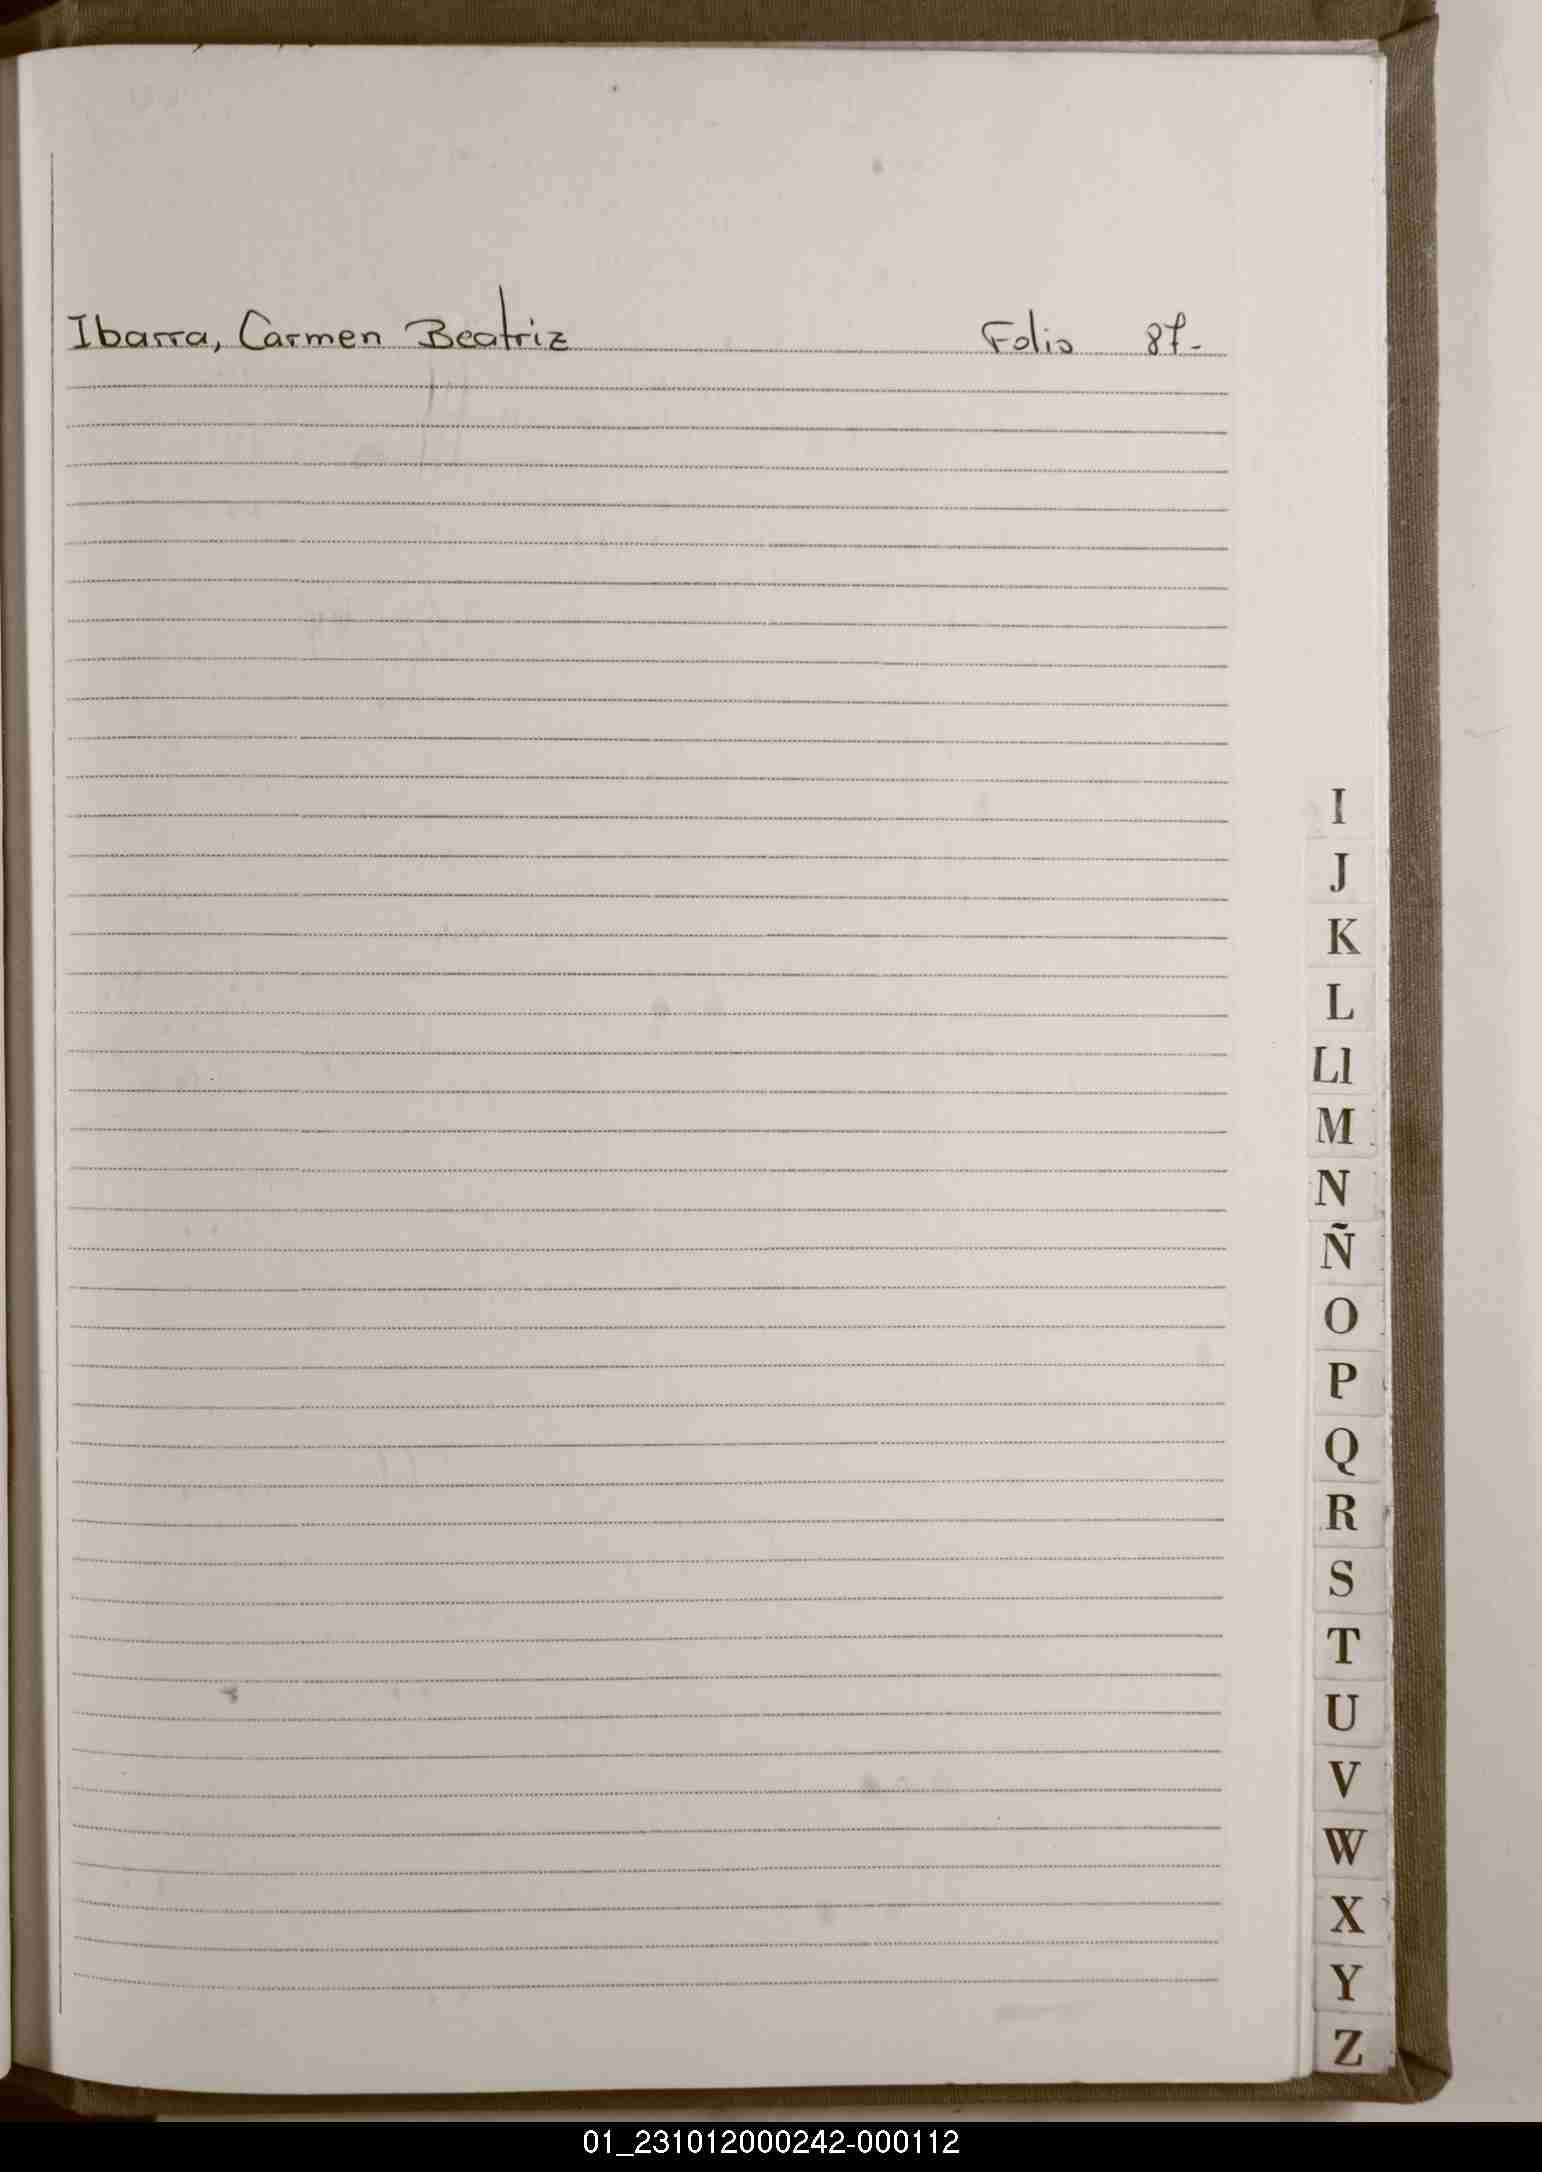 Ibarra, Carmen Beatriz Folio 87-
I
J
K
L
Ll
M
N
Ñ
O
P
Q
R
S
T
U
V
W
X
Y
Z
01_231012000242-000112